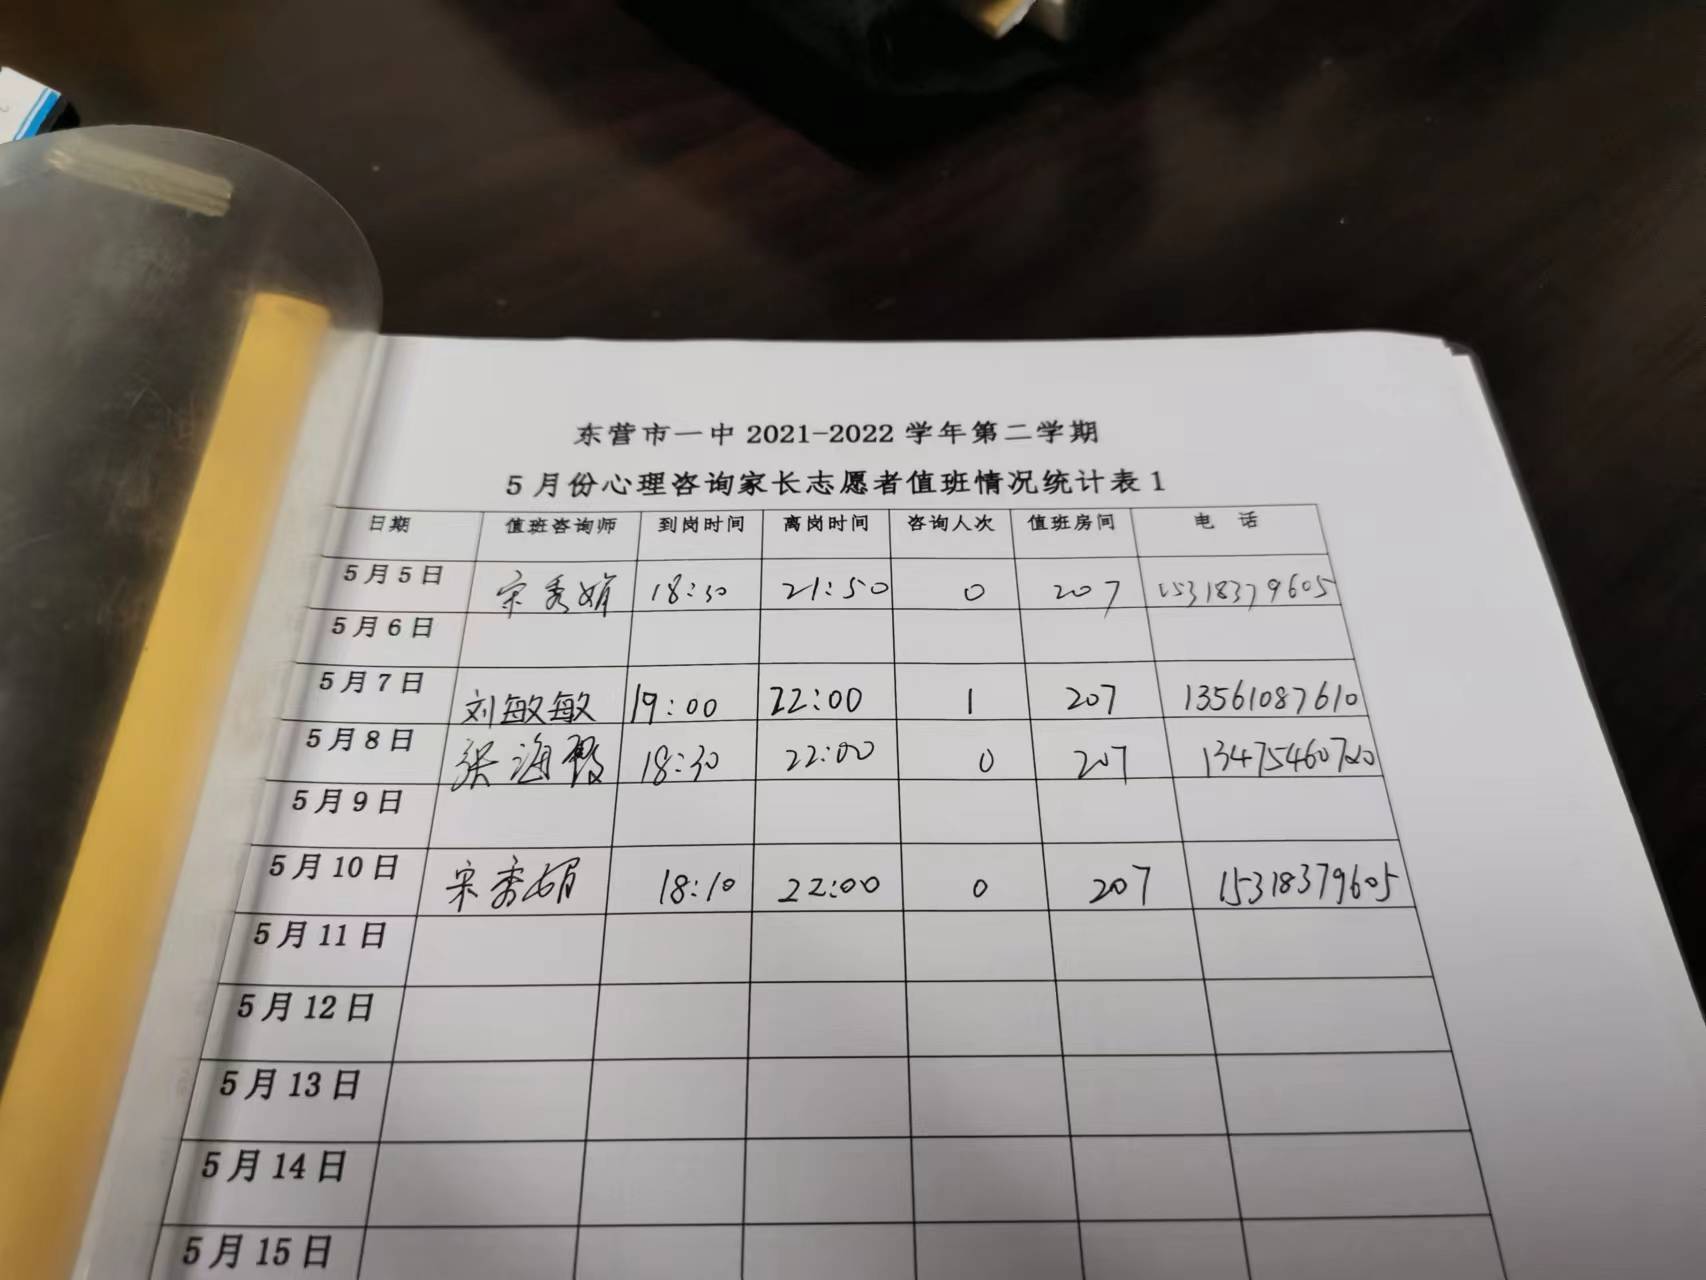 东营市一中 2021-2022 学年第二学期
5 月份心理咨询家长志愿者值班情况统计表 1
日期 值班咨询师 到岗时间 离岗时间 咨询人次 值班房间 电 话
5 月 5 日 宋秀娟 18:30 21:50 0 207 15318379605
5 月 6 日
5 月 7 日 刘敏敏 19:00 22:00 1 207 13561087610
5 月 8 日 张海霞 18:30 22:00 0 207
5 月 9 日
5 月 10 日 宋秀娟 18:10 22:00 0 207 15318379605
5 月 11 日
5 月 12 日
5 月 13 日
5 月 14 日
5 月 15 日